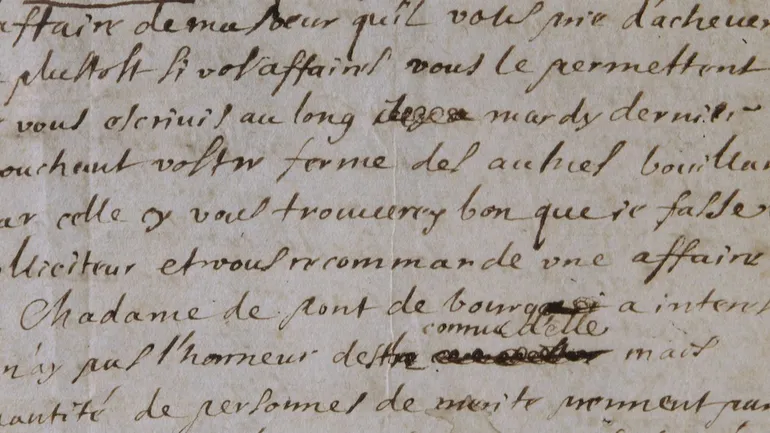 affaire de ma sœur qu'il vous prie d'achever
plustost si vos affaires vous le permettent
vous escrivis au long mardy dernier
touchant vostre ferme des autres bouillan
par celle cy vous trouverez bon que je fasse
lliciteur et vous recommande une affaire
Madame de pont de bourg a interes
connu d'elle
n'ay pas l'honneur destre mais
quantité de personnes de merite prennent par